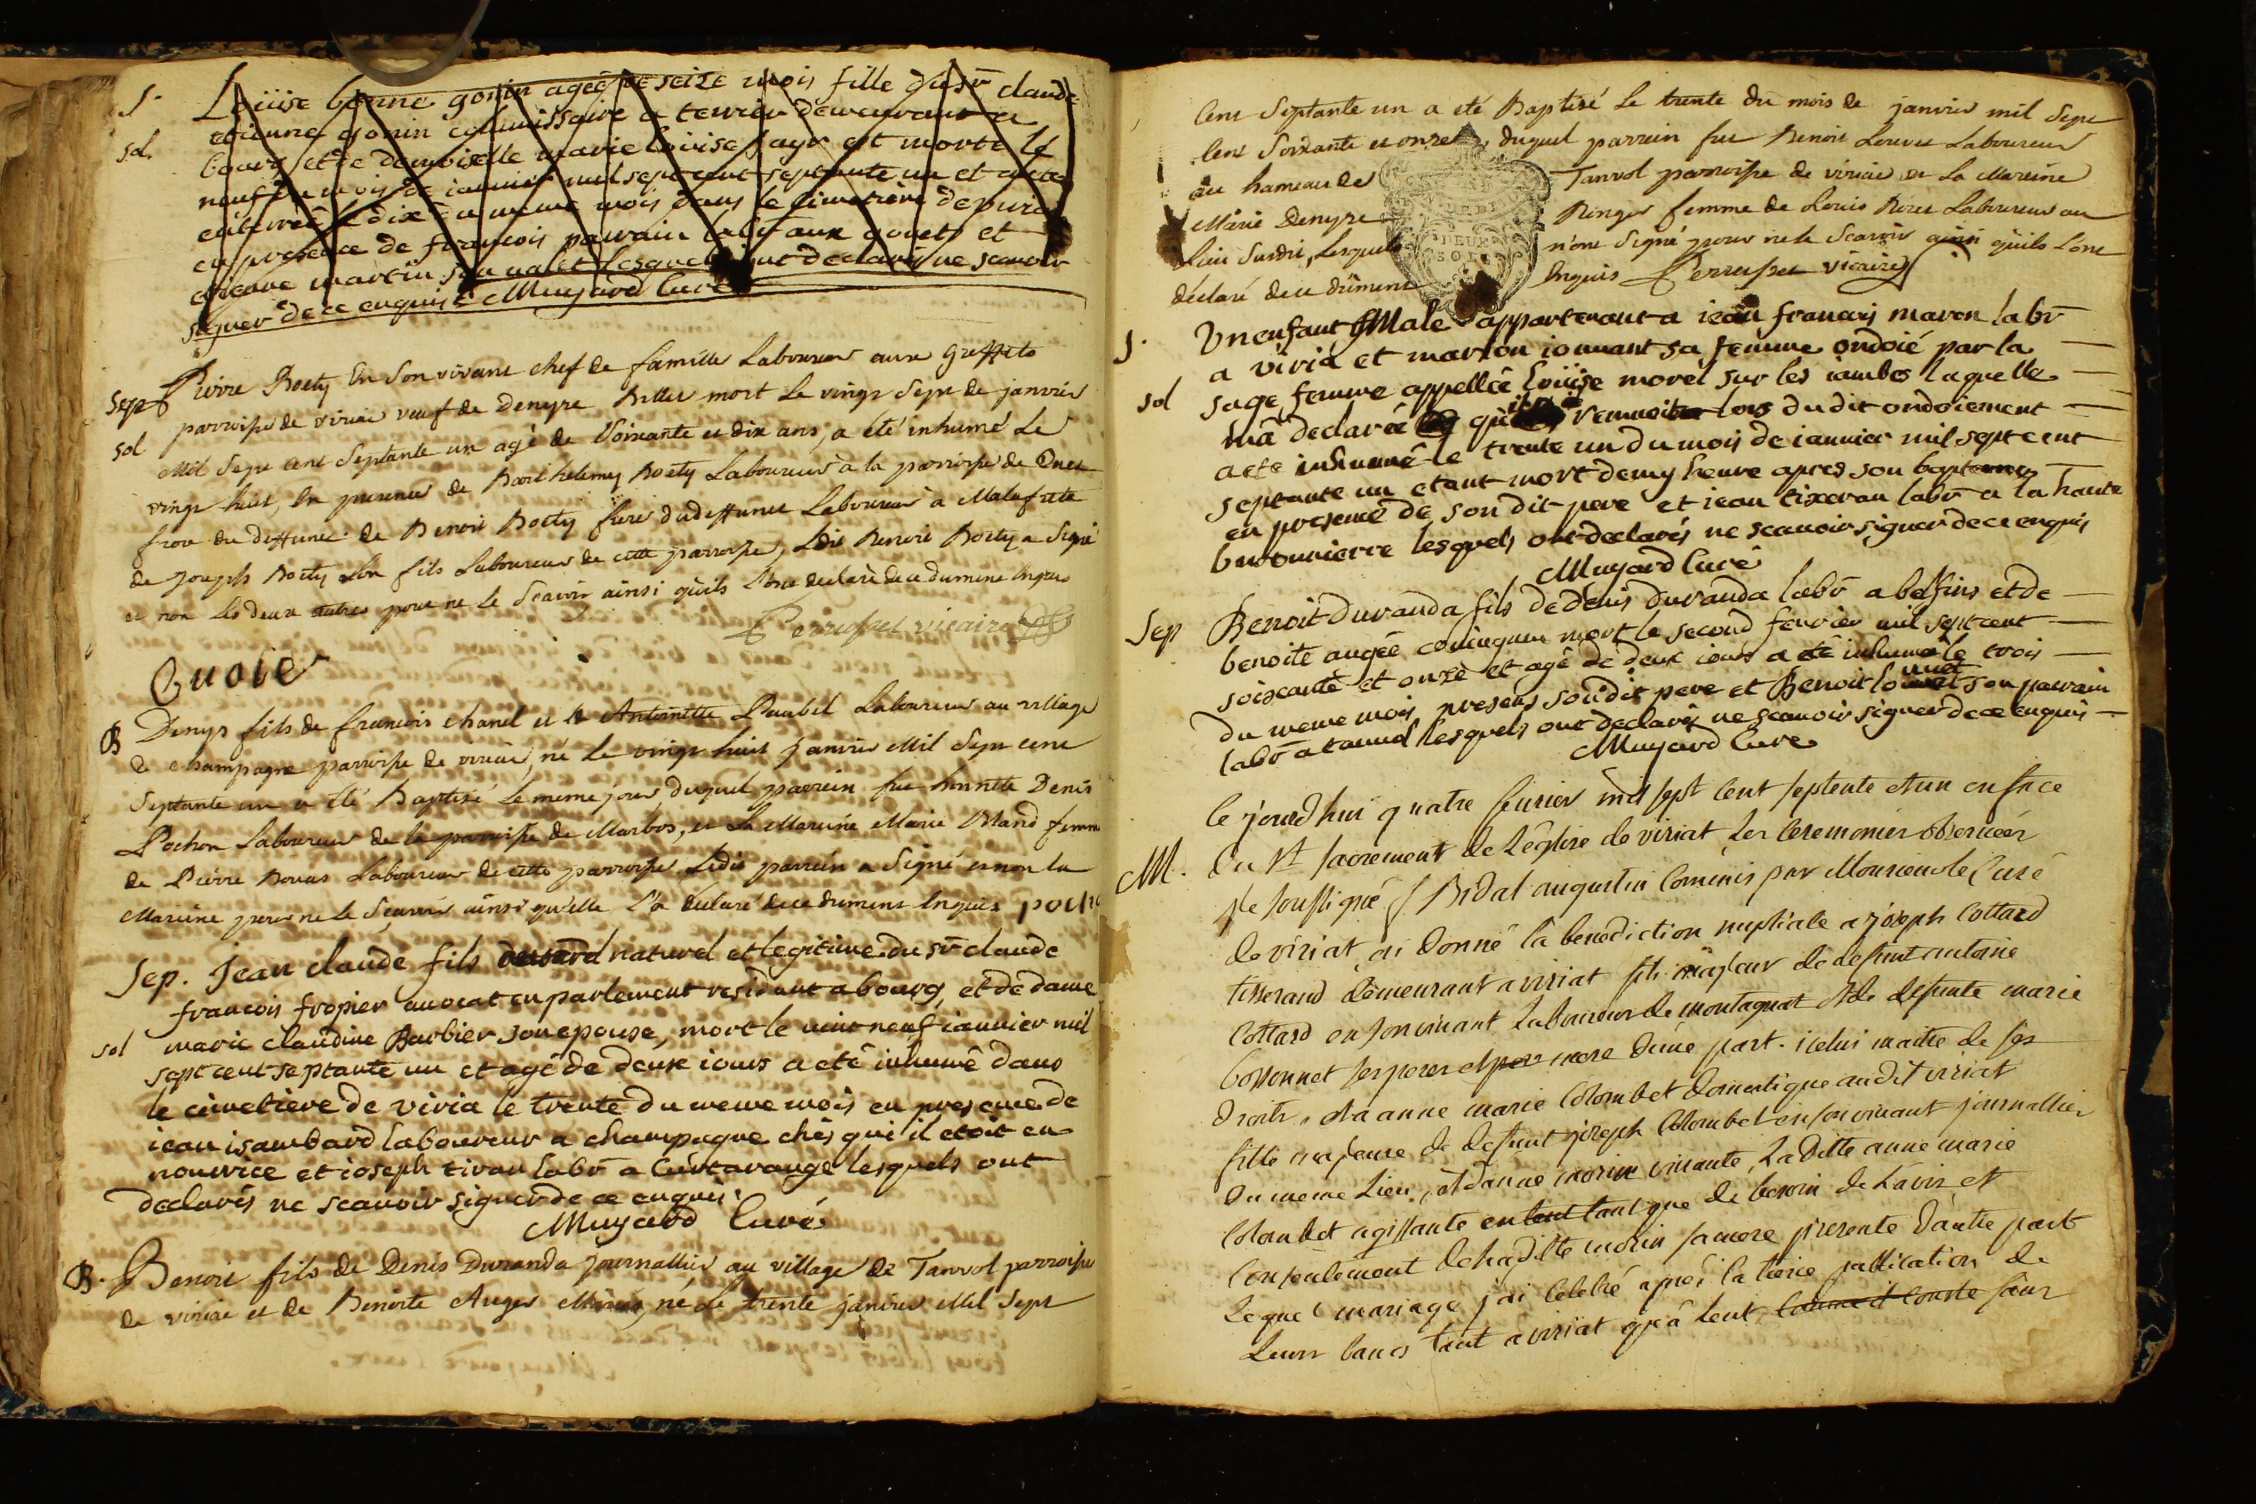 S. Loüise bonne gonin ageê de seize mois fille du sr claude
sol. etienne gonin commissaire a terrier demeurant a
bourg et de demoiselle marie loüise sayr est morte le
neuf du mois de ianvier mil sept cent septante un et a ete
enterreê le dixe du meme mois dans le simetiere de
en presence de francois pauvain labr aux gouets et
etienne martin son valet lesquels ont declarés ne scavoir
signer de ce enquis Muyard Curé
Sep Pierre Boëty En Son vivant chef de famille Laboureur aux Greffets
sol parroisse de viriac veuf de Denyse Biller mort Le vingt Sept de janvier
Mil Sept cent Septante un agé de Soixante et dix ans, a été inhumé Le
vingt huit, En presence de Barthelemy Boëty Laboureur à la parroisse de
frere du deffunct de Benoit Boëty frere dudeffunct Laboureur à Malafrete
de Joseph Boëty Son fils Laboureur de cette parroisse, Ledit Benoit Boëty a Signé
et non les deux autres pour ne le Scavoir ainsi qu'ils L'ont declaré de ce dument Enquis
Perruset vicaire
Buoier
B Denys fils de francois chanel et d' Antoinette Laboureur au village
de champagne parroisse de viriac, né Le vingt huit Janvier Mil Sept cent
Septante un a été Baptisé Le meme jour, duquel parrein fut honnete Denis
Pochon Laboureur de la parroisse de Marbos, et La Mareine Marie femme
de Pierre Bovas Laboureur de cette parroisse Ledit parrein a Signé et non la
Mareine pour ne le Scavoir ainsi qu'elle L'a declaré de ce dument Enquis poch
Sep. Jean claude fils naturel et legitime du sr claude
francois fropier avocat en parlement residant a bourg, et de dame
sol marie claudine Barbier son epouse, mort le vint neuf ianvier mil
sept cent septante un et agê de deux iours a etê inhumê dans
le cimetiere de viria le trente du meme mois en presence de
iean isambard laboureur a champagne chés qui il etoit en
nourrice et ioseph tivan labr a Curtarange lesquels ont
declarés ne scavoir signer de ce enquis.
Muyard Curé
B. Benoit fils de Denis Duranda Journallier au village de Tanvol parroisse
de viriac et de Benoite Auger Mariés, né Le trente janvier Mil Sept
Cent Septante un a été Baptisé Le trente du mois de janvier mil Sept
Cent Soixante et onze, duquel parrein fut Benoit Louvet Laboureur
au hameau de Tanvol parroisse de viriac et La Mareine
Marie Denyse Ringer femme de Louis Boret Laboureur au
Lieu Susdit, Lesquels n'ont Signé pour ne le Scavoir ainsi qu'ils L'ont
déclaré de ce dûment Enquis Perruset vicaire
S. Un enfant Male appartenant a iean francois maron labr
a viria et marion ionnant sa femme ondoié par la
sol sage femme appelleê loüise morel sur les iambes laquelle
m'a declarée qu'il remuoit lors du dit ondoiement
a ete inhumê le trente un du mois de ianvier mil sept cent
septante un etant mort demy heure apres son bapteme
en presence de son dit pere et iean tixeran labr a la haute
butonnierre lesquels ont declarés ne scavoir signer de ce enquis
Muyard Curé
Sep Benoit duranda fils de denis duranda labr a et de
benoite augée coniugues mort le second fevrier mil sept cent
soixante et onze et agé de deux iours a eté inhumé le trois
du meme mois presens son dit pere et Benoit louvet son parrain
labr a tanvol lesquels ont declarés ne scavoir signer de ce enquis
Muyard Curé
Ce jourd'hui quatre fevrier mil sept cent septente et un en face
M. du St sacrement de L'église de viriat les ceremonies observées
je soussigné f Bidal augustin Cominis par Monsieur le Curé
de viriat, ai donné la benediction nuptiale a joseph Cottard
tisserand demeurant a viriat fils majeur de defunt antoine
Cottard en son vivant Laboureur de montagnat et de defunte marie
bossonnet ses peres et mere d'une part. icelui maitre de ses
droits, et a anne marie Colombet domestique au dit viriat
fille majeure de defunt joseph Colombet en son vivant journallier
du meme Lieu, et d'anne morin vivante, La ditte anne marie
Colombet agissante en tant que de besoin de L'avis et
Consentement de laditte morin sa mere presente d'autre part
Lequel mariage j'ai celebré après la tierce publication de
Leurs bancs tant a viriat qu'à leut, comme il conste sans